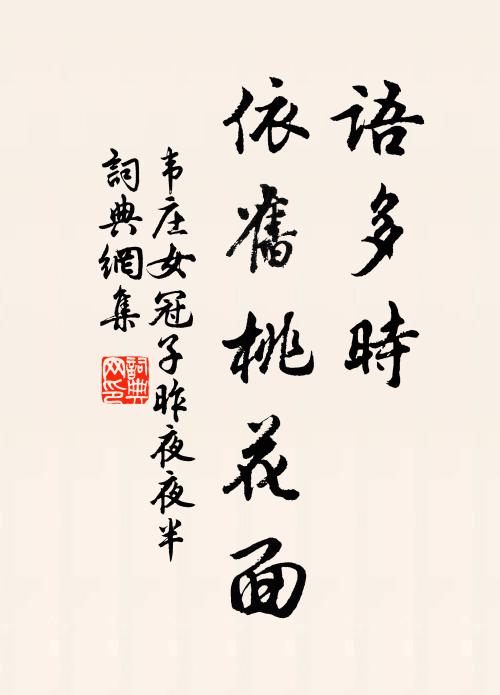 語多時
依舊桃花面
韦庄女冠子昨夜夜半
詞典網集
詞典
网印